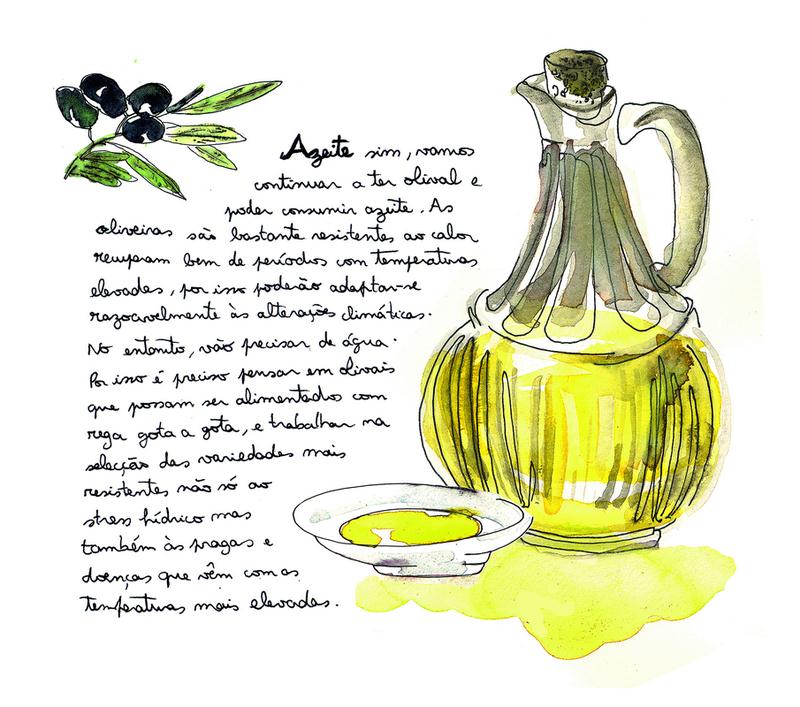 Azeite sim, vamos
continuar a ter olival e
poder consumir azeite. As
oliveiras são bastante resistentes ao calor
recuperam bem de períodos com temperaturas
elevadas, por isso poderão adaptar-se
razoavelmente às alterações climáticas.
No entanto, vão precisar de água.
Por isso é preciso pensar em olivais
que possam ser alimentados com
rega gota a gota, e trabalhar na
selecção das variedades mais
resistentes não só ao
stress hídrico mas
também às pragas e
doenças que vêm com as
temperaturas mais elevadas.